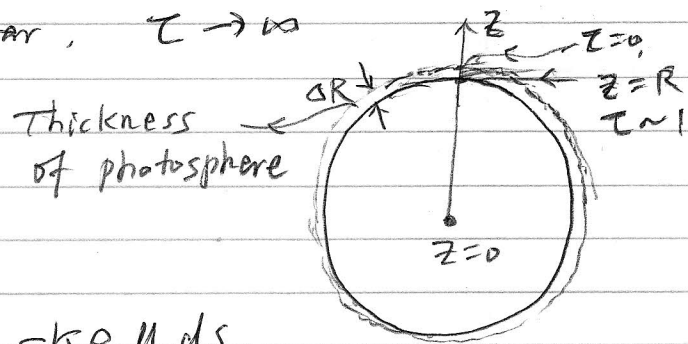 τ → ∞
z
τ=0,
ΔR
z=R
τ~1
Thickness
of photosphere
z=0